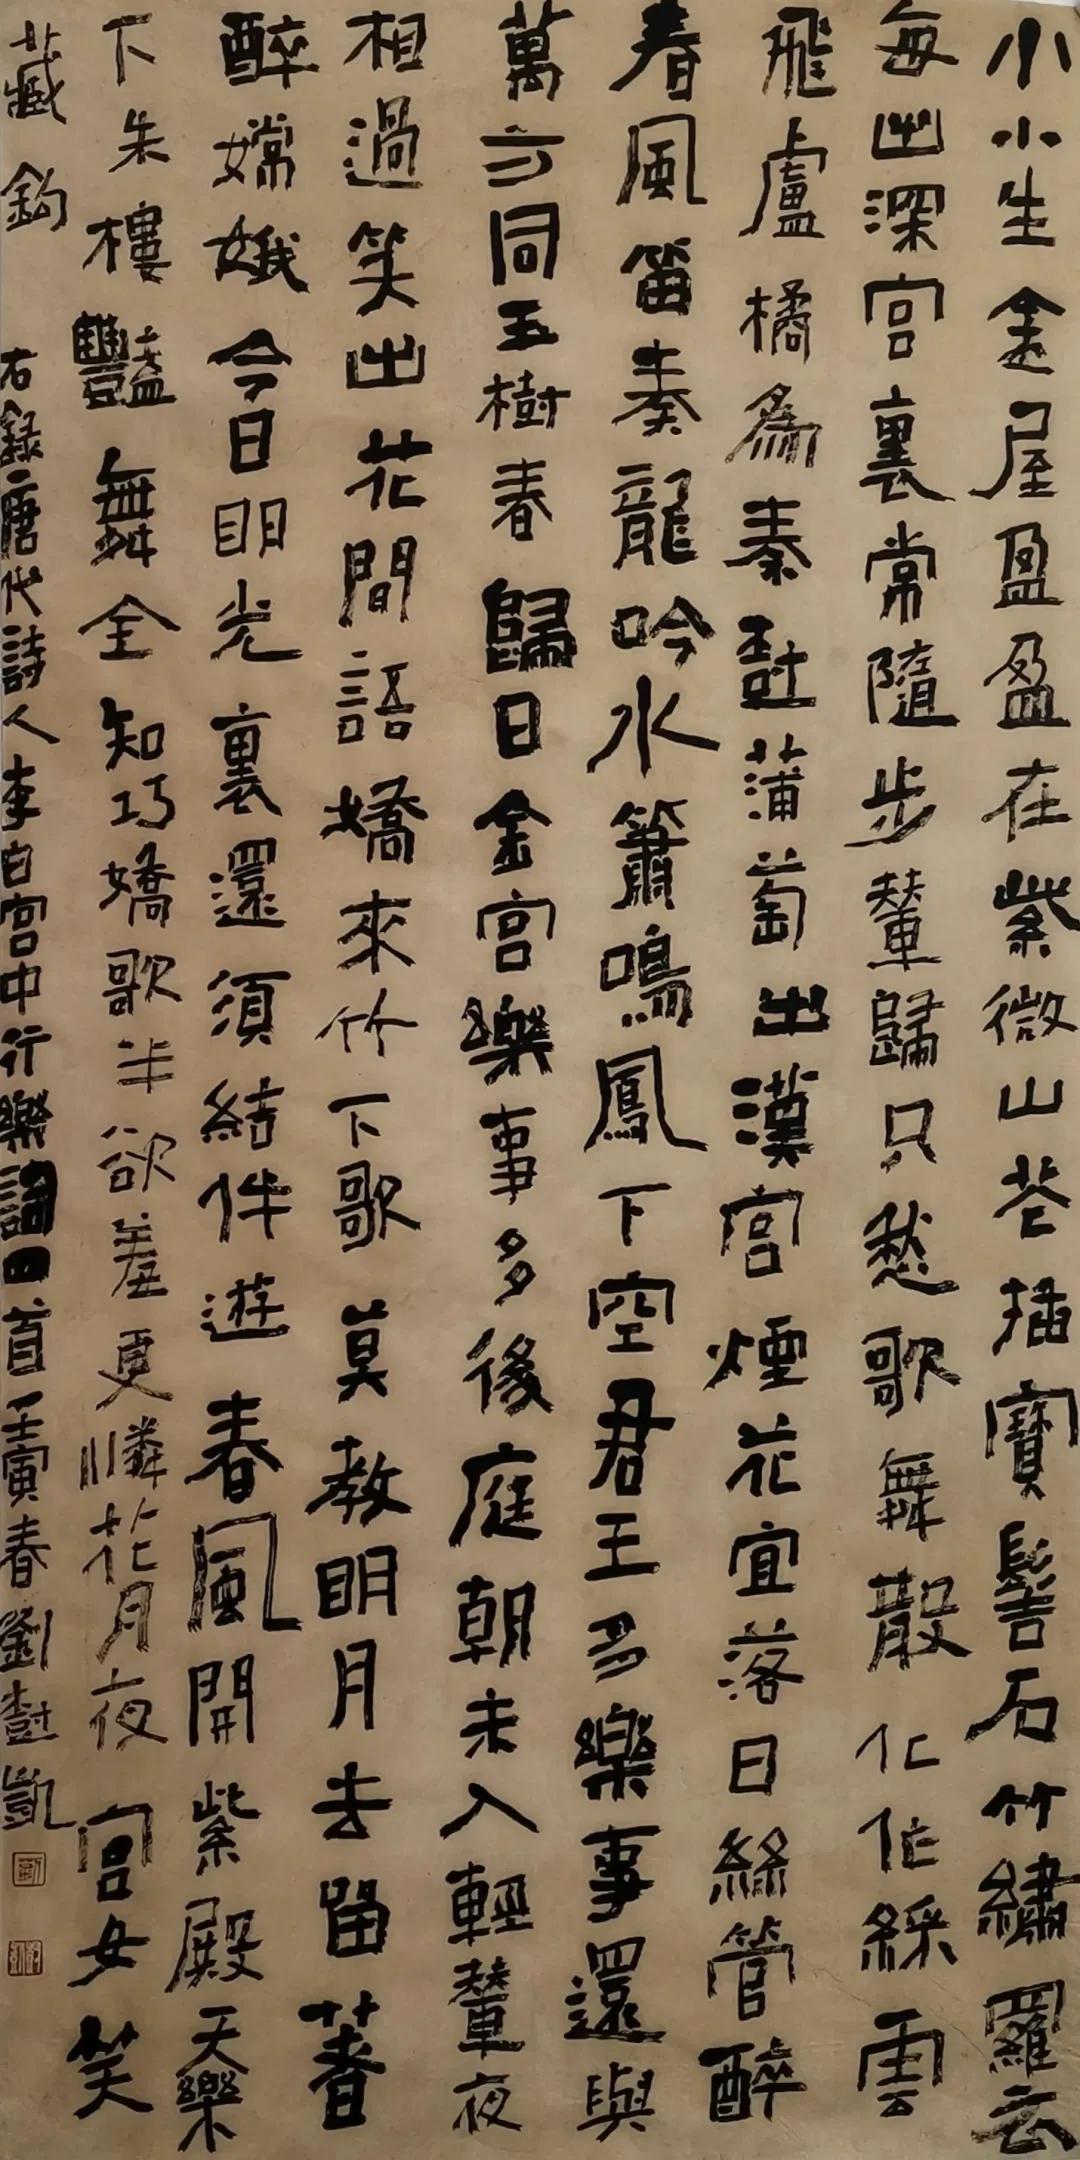 小小生金屋盈盈在紫微山花插寶髻石竹繡羅衣
每出深宮裏常隨步輦歸只愁歌舞散化作綵雲
飛盧橘為秦樹蒲萄出漢宮煙花宜落日絲管醉
春風笛奏龍吟水簫鳴鳳下空君王多樂事還與
萬方同玉樹春歸日金宮樂事多後庭朝未入輕輦夜
相過笑出花間語嬌來竹下歌莫教明月去留著
醉嫦娥今日明光裏還須結伴遊春風開紫殿天樂
下朱樓豔舞全知巧嬌歌半欲羞更憐花月夜宮女笑
藏鉤 右錄唐代詩人李白宮中行樂詞四首壬寅春劉樹凱